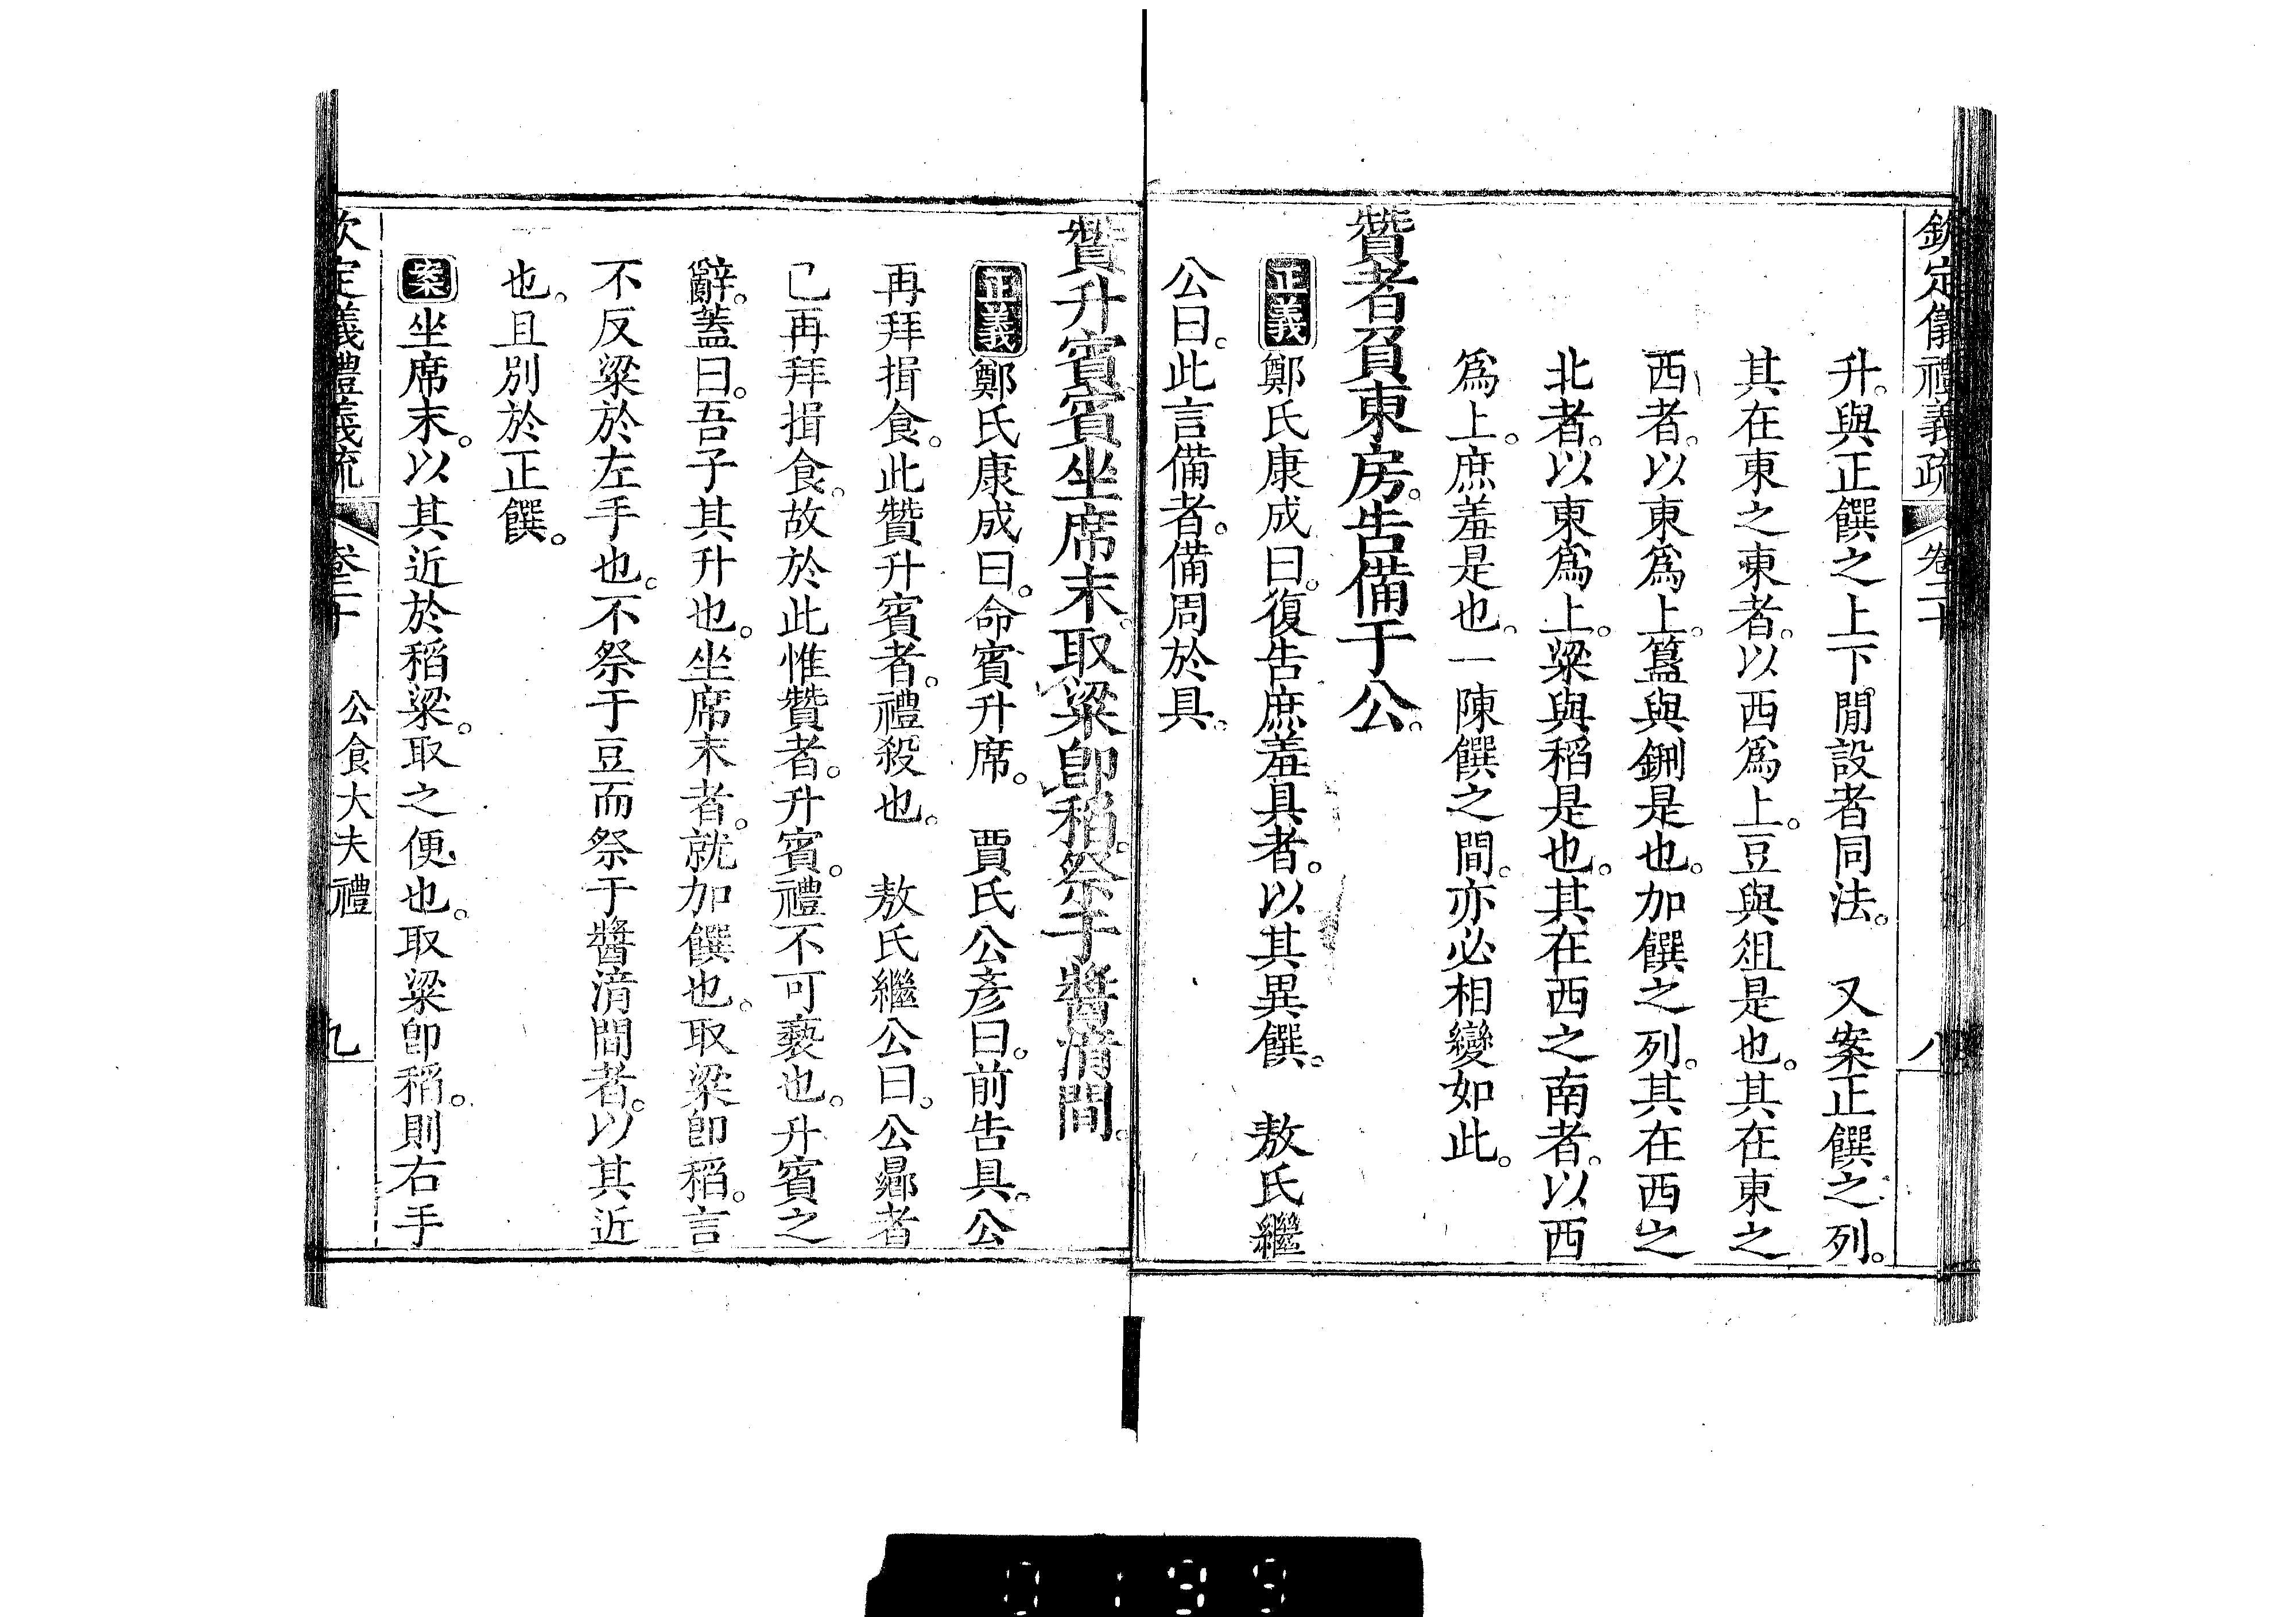 欽定儀禮義疏 卷二十 八
升。與正饌之上下。間設者同法。 又案正饌之列。
其在東之東者。以西爲上。豆與俎是也。其在東之
西者。以東爲上。簋與鉶是也。加饌之列。其在西之
北者。以東爲上。粱與稻是也。其在西之南者。以西
爲上。庶羞是也。一陳饌之間。亦必相變如此。
贊者負東房。告備于公。
正義 鄭氏康成曰。復告庶羞具者。以其異饌。 敖氏繼
公曰。此言備者。備周於具。
贊升賓。賓坐席末。取粱卽稻。祭于醬湆間。
正義 鄭氏康成曰。命賓升席。 賈氏公彥曰。前告具。公
再拜揖食。此贊升賓者。禮殺也。 敖氏繼公曰。公曏者
已再拜揖食。故於此惟贊者。升賓。禮不可褻也。升賓之
辭。蓋曰。吾子其升也。坐席末者。就加饌也。取粱卽稻。言
不反粱於左手也。不祭于豆而祭于醬湆間者。以其近
也。且別於正饌。
案 坐席末。以其近於稻粱。取之便也。取粱卽稻。則右手
欽定儀禮義疏 卷二十 公食大夫禮 九
0199